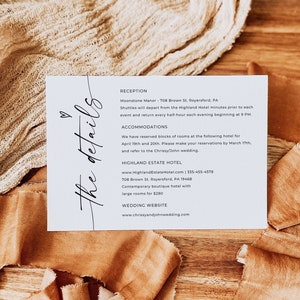 the details
RECEPTION
Moonstone Manor - 708 Brown St, Royersford, PA
Shuttles will depart from the Highland Hotel minutes prior to each
event and return every half-hour each evening beginning at 9 PM
ACCOMMODATIONS
We have reserved blocks of rooms at the following hotel for
April 19th and 20th. Please make your reservations by March 17th,
and refer to the Chrissy/John wedding.
HIGHLAND ESTATE HOTEL
www.HighlandEstateHotel.com | 335-455-4576
708 Brown St. Royersford, PA 19468
Contemporary boutique hotel with
large rooms for $280
WEDDING WEBSITE
www.chrissyandjohnwedding.com